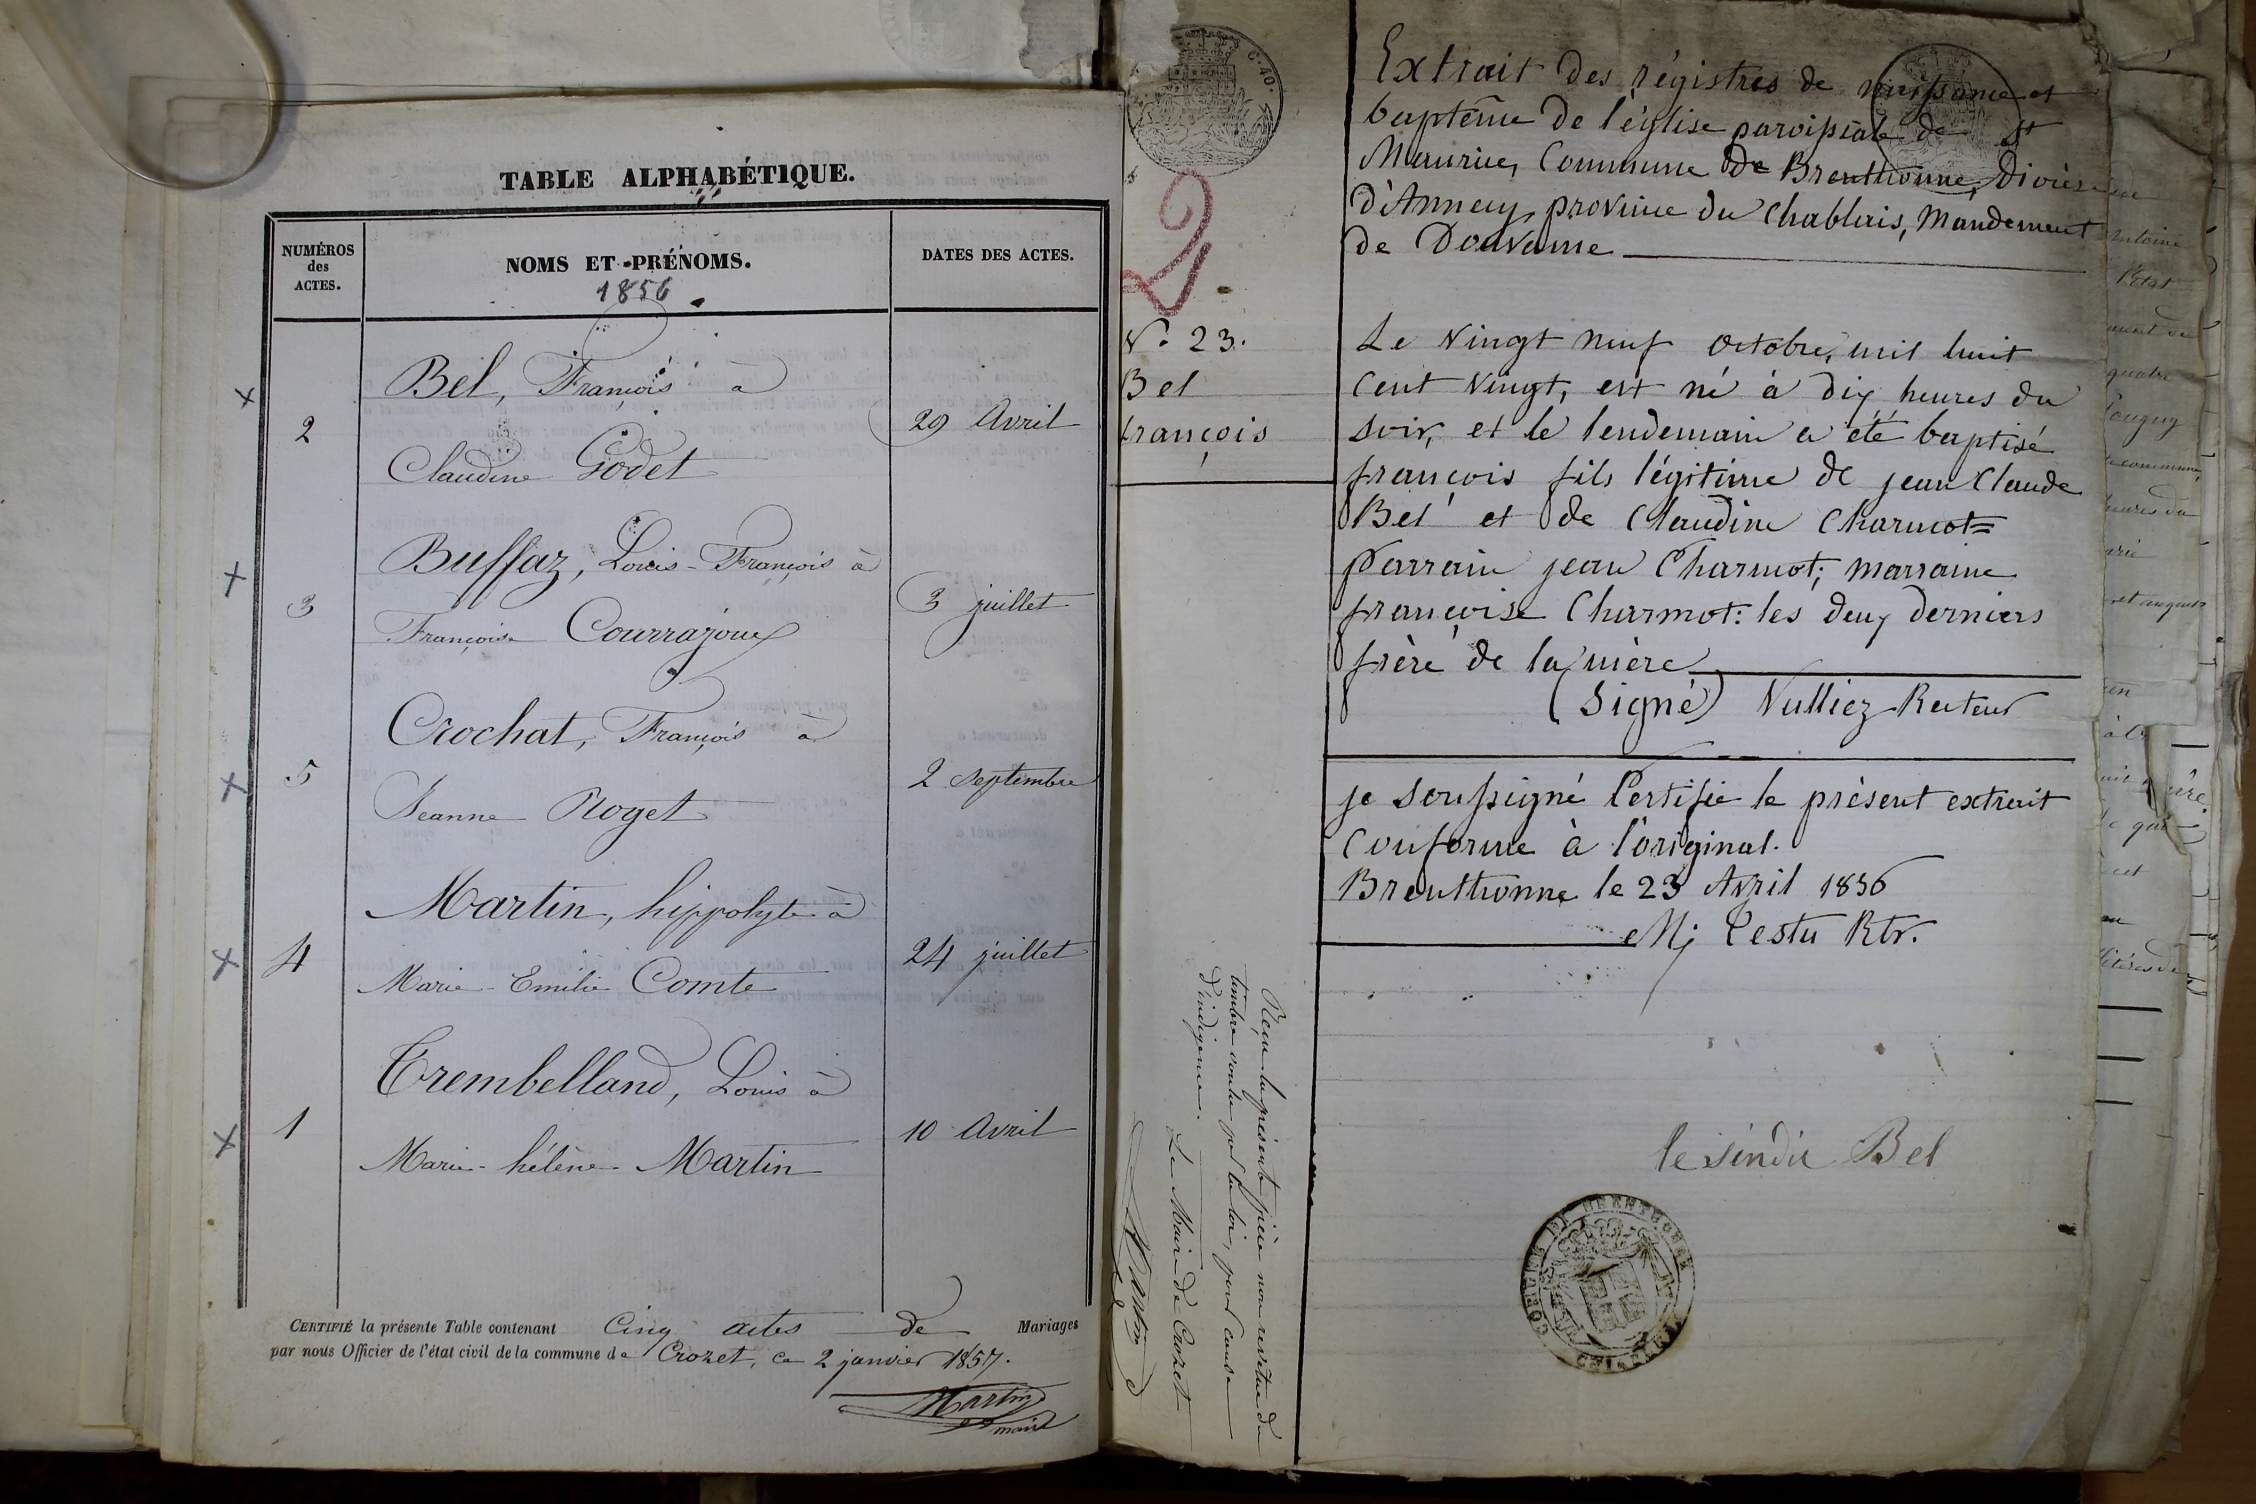 TABLE ALPHABÉTIQUE.
NUMÉROS des ACTES.
NOMS ET PRÉNOMS.
1856
DATES DES ACTES.
Bel, François à
2
29 Avril
Claudine Godet
Buffaz, Louis-François à
3
3 juillet
Françoise Courrajoux
Crochat, François à
5
2 septembre
Jeanne Roget
Martin, hippolyte à
4
24 juillet
Marie-Emilie Comte
Trembelland, Louis à
1
10 Avril
Marie-hélène Martin
CERTIFIÉ la présente Table contenant Cinq actes de Mariages
par nous Officier de l'état civil de la commune de Crozet, ce 2 janvier 1857.
Martin
maire
C. 40.
2
N. 23.
Bel
françois
Reçu la présente pièce non revêtue du
timbre voulu par la loi, pour cause
d'indigence.
Le Maire de Crozet
Martin
Extrait des régistres de naissance et
baptême de l'église paroissiale de St
Maurice, Commune de Brenthonne, Diocèse
d'Annecy, province du Chablais, Mandement
de Douvaine
Le vingt neuf octobre, mil huit
cent vingt, est né à dix heures du
soir, et le lendemain a été baptisé
françois fils légitime de jean Claude
Bel et de Claudine Charmot=
Parrain jean Charmot; marraine
françoise Charmot: les deux derniers
frère de la mère
(Signé) Vulliez Recteur
je soussigné Certifie le présent extrait
Conforme à l'original.
Brenthonne le 23 Avril 1856
Mj Testu Rtr.
le sindic Bel